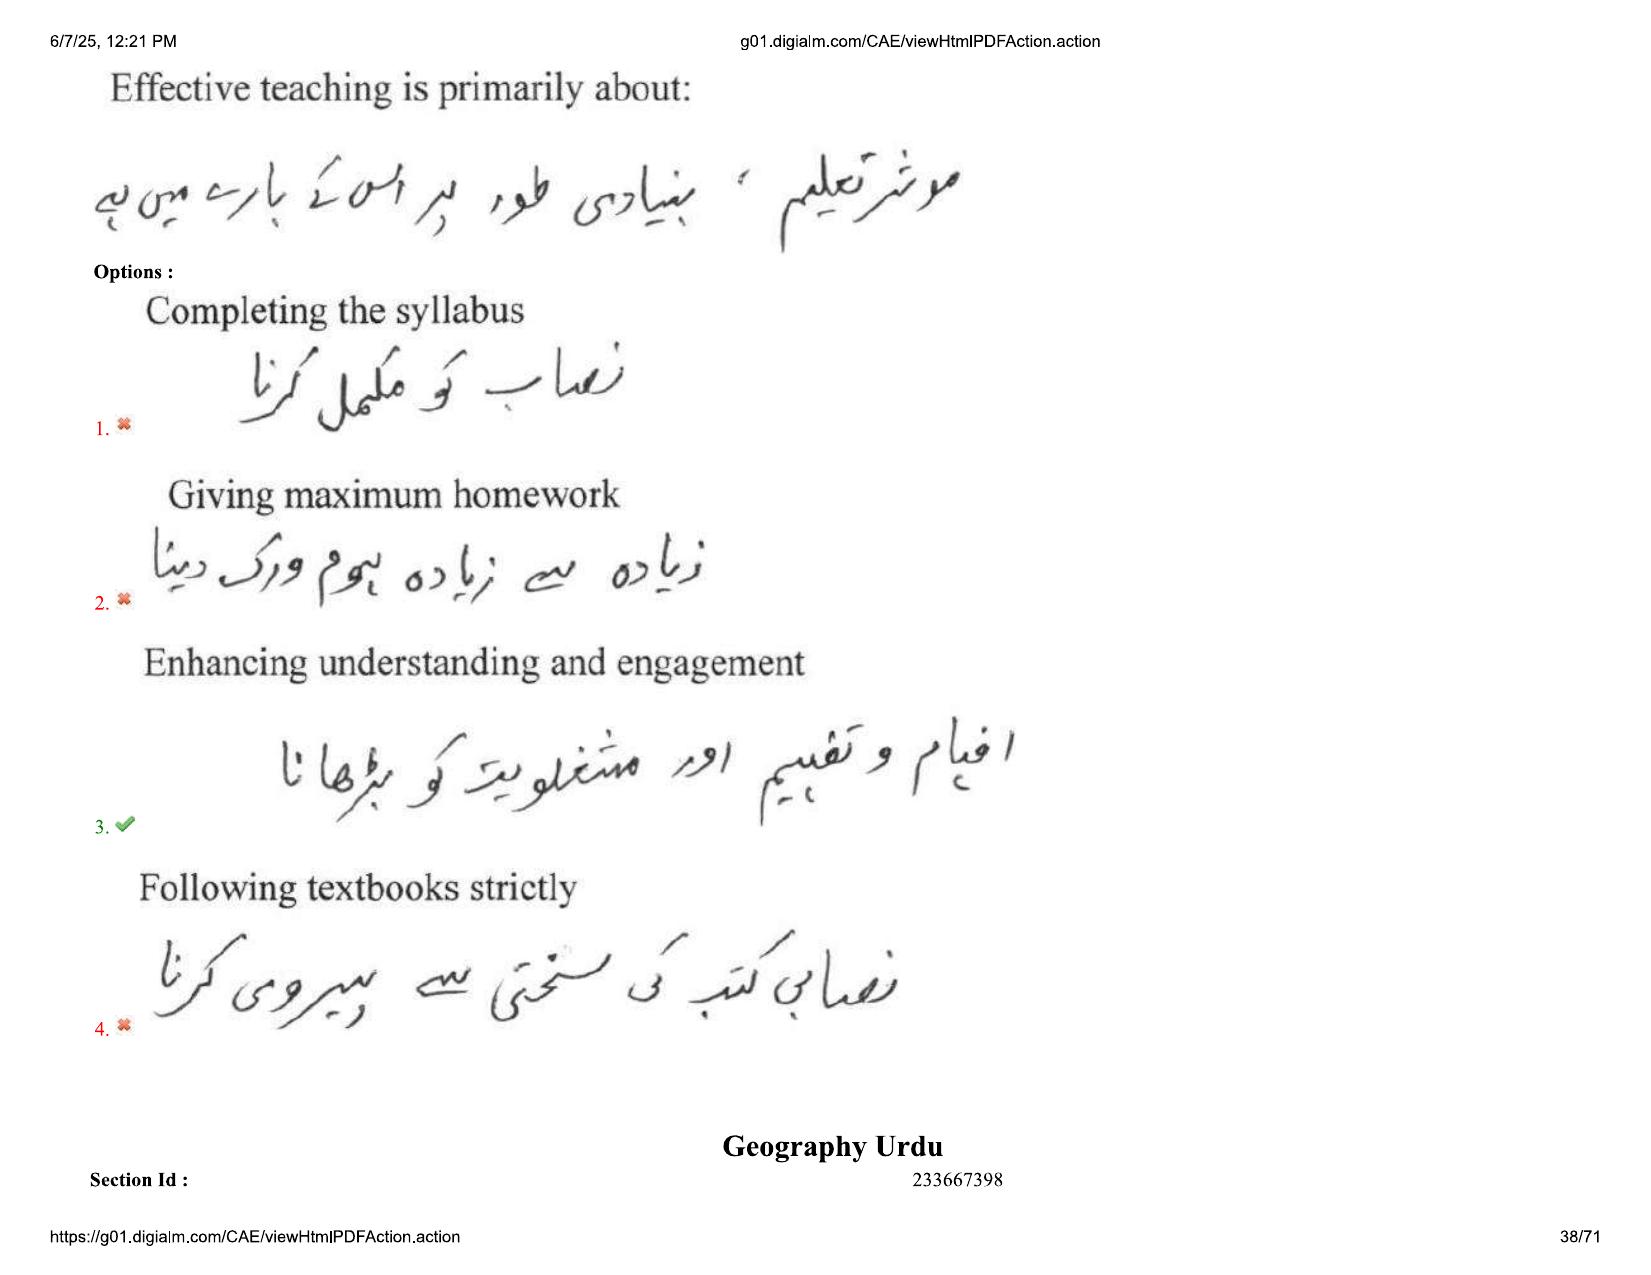 6/7/25, 12:21 PM
g01.digialm.com/CAE/viewHtmlPDFAction.action
Effective teaching is primarily about:
موثر تعلیم ، بنیادی طور پر اس کے بارے میں ہے
Options :
Completing the syllabus
نصاب کو مکمل کرنا
1.
Giving maximum homework
زیادہ سے زیادہ ہوم ورک دینا
2.
Enhancing understanding and engagement
افہام و تفہیم اور مشغلویت کو بڑھانا
3.
Following textbooks strictly
نصابی کتب کی سختی سے پیروی کرنا
4.
Geography Urdu
Section Id : 233667398
https://g01.digialm.com/CAE/viewHtmlPDFAction.action
38/71